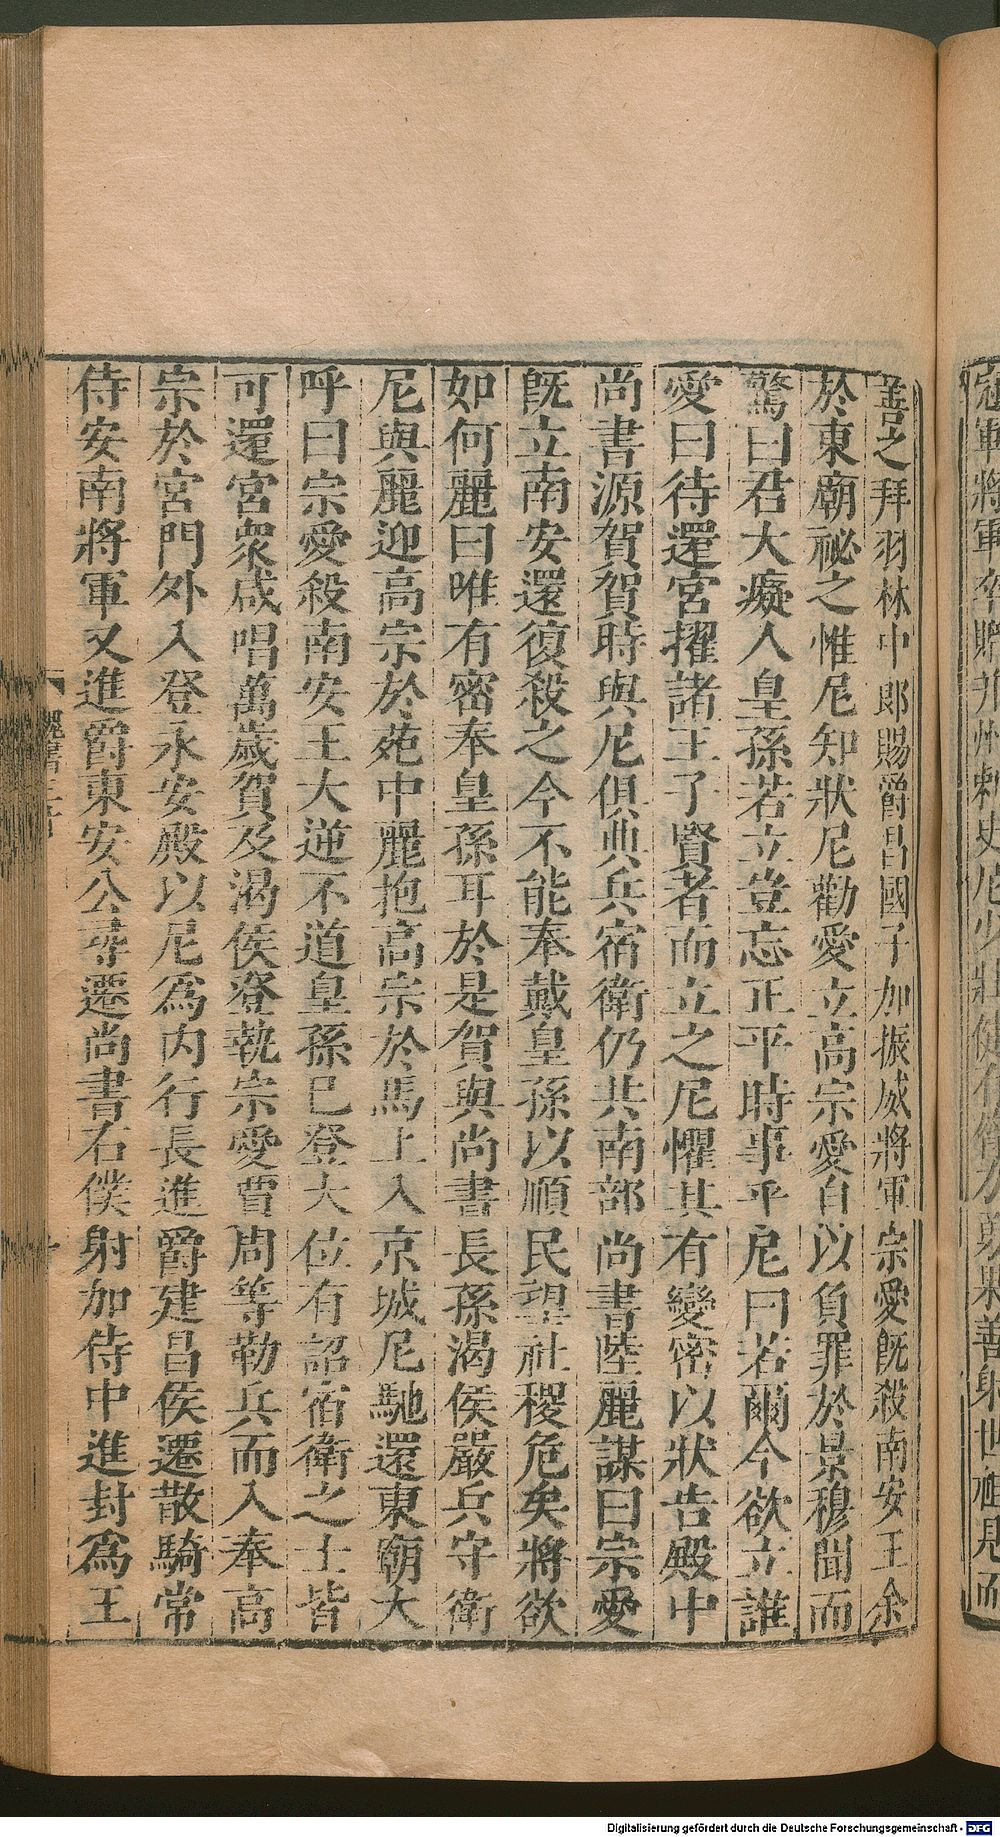 冠軍將軍卒贈并州刺史尼少壯健有膂力勇果善射世祖見而
善之拜羽林中郎賜爵昌國子加振威將軍宗愛既殺南安王余
於東廟祕之惟尼知狀尼勸愛立高宗愛自以負罪於景穆聞而
驚曰君大癡人皇孫若立豈忘正平時事乎尼曰若爾今欲立誰
愛曰待還宮擢諸王子賢者而立之尼懼其有變密以狀告殿中
尚書源賀賀時與尼俱典兵宿衛仍共南部尚書陸麗謀曰宗愛
既立南安還復殺之今不能奉戴皇孫以順民望社稷危矣將欲
如何麗曰唯有密奉皇孫耳於是賀與尚書長孫渴侯嚴兵守衛
尼與麗迎高宗於苑中麗抱高宗於馬上入京城尼馳還東廟大
呼曰宗愛殺南安王大逆不道皇孫已登大位有詔宿衛之士皆
可還宮衆咸唱萬歲賀及渴侯登執宗愛賈周等勒兵而入奉高
宗於宮門外入登永安殿以尼爲內行長進爵建昌侯遷散騎常
侍安南將軍又進爵東安公尋遷尚書右僕射加侍中進封爲王